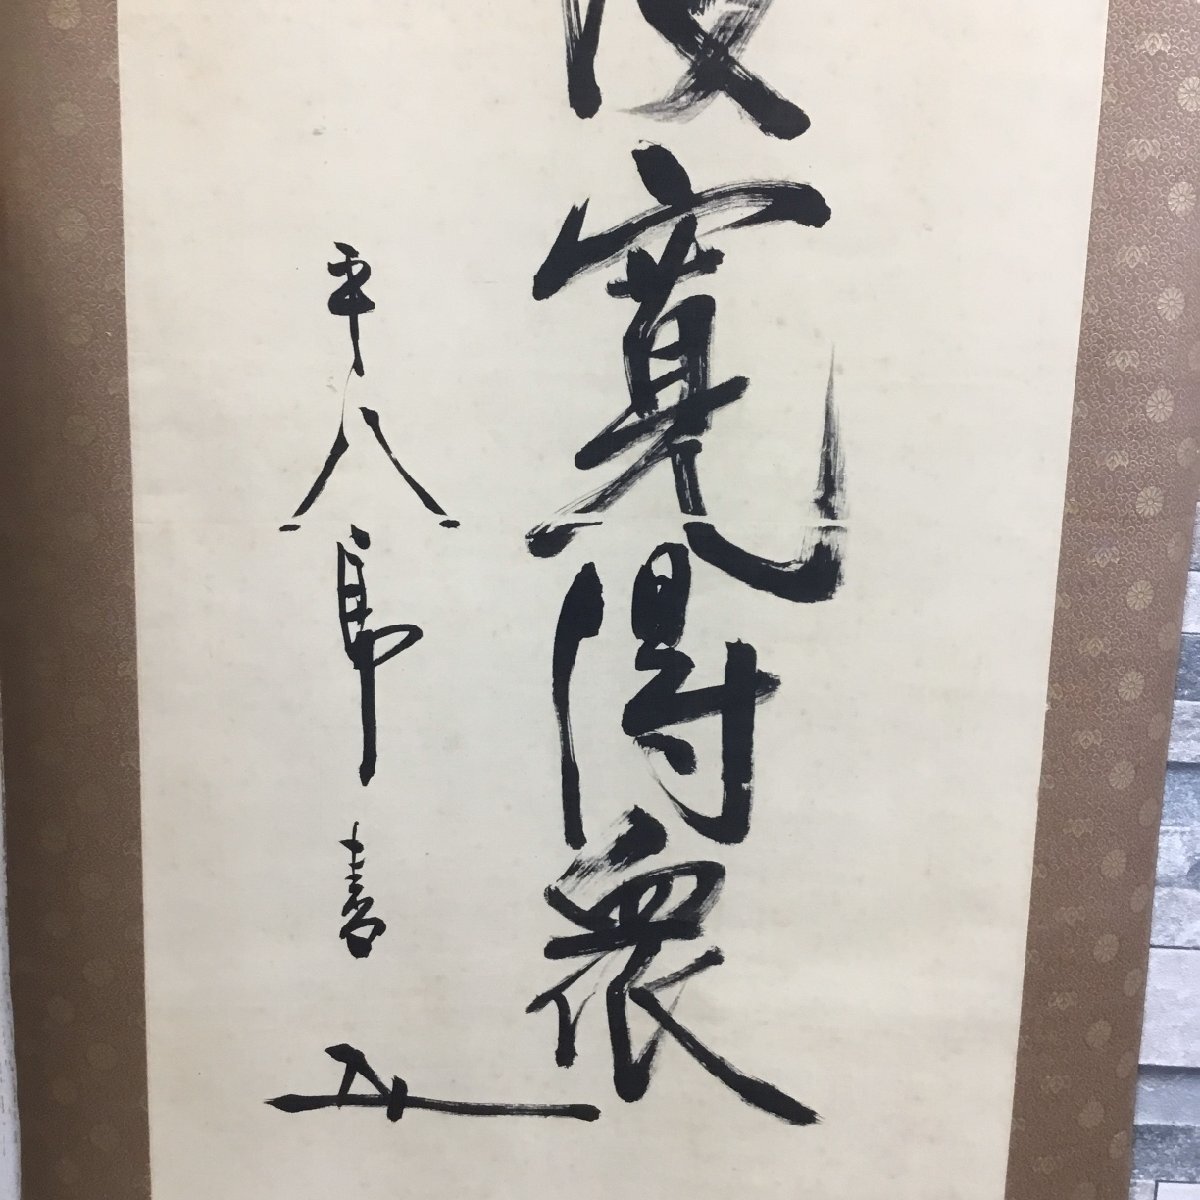 寛得衆
平八郎書